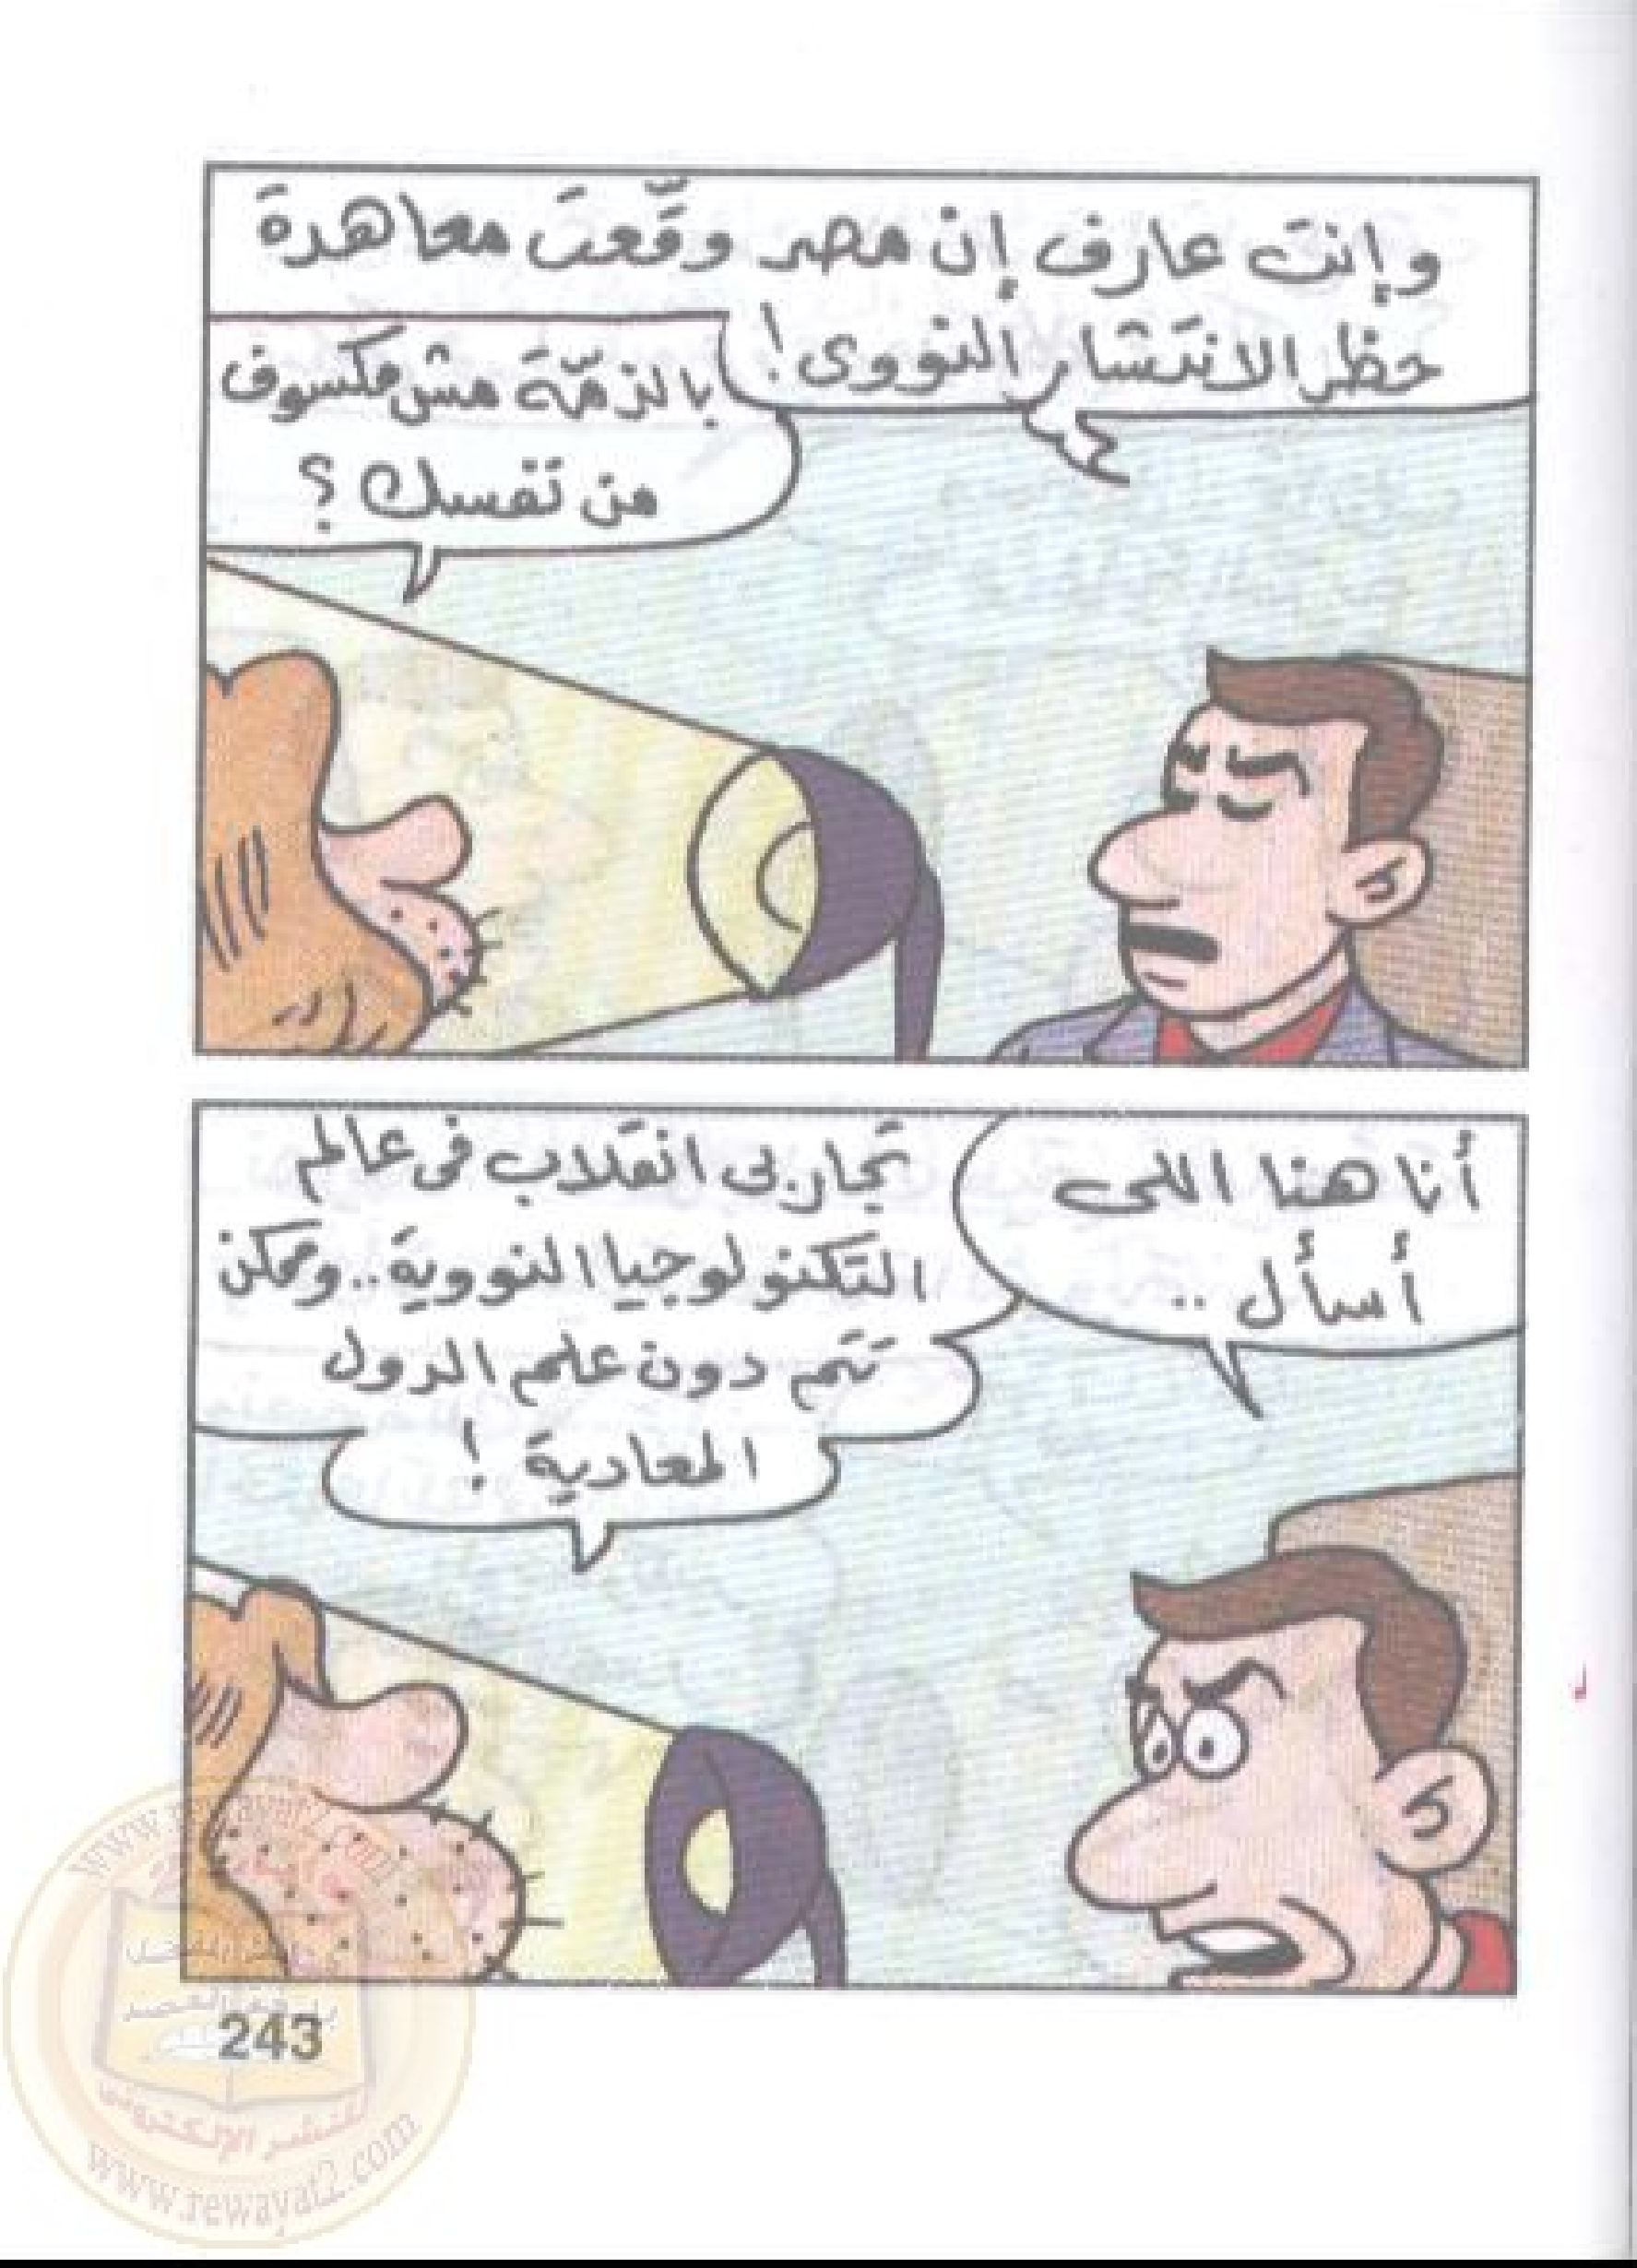 وإنت عارف إن مصر وقّعت معاهدة
حظر الانتشار النووى!
بالذمّة مش مكسوف
من نفسك؟
أنا هنا اللى
أسأل ..
تجاربى انقلاب فى عالم
التكنولوجيا النووية.. وممكن
تتم دون علم الدول
المعادية!
243
www.rewayat2.com
للنشر الإلكترونى
www.rewayat2.com